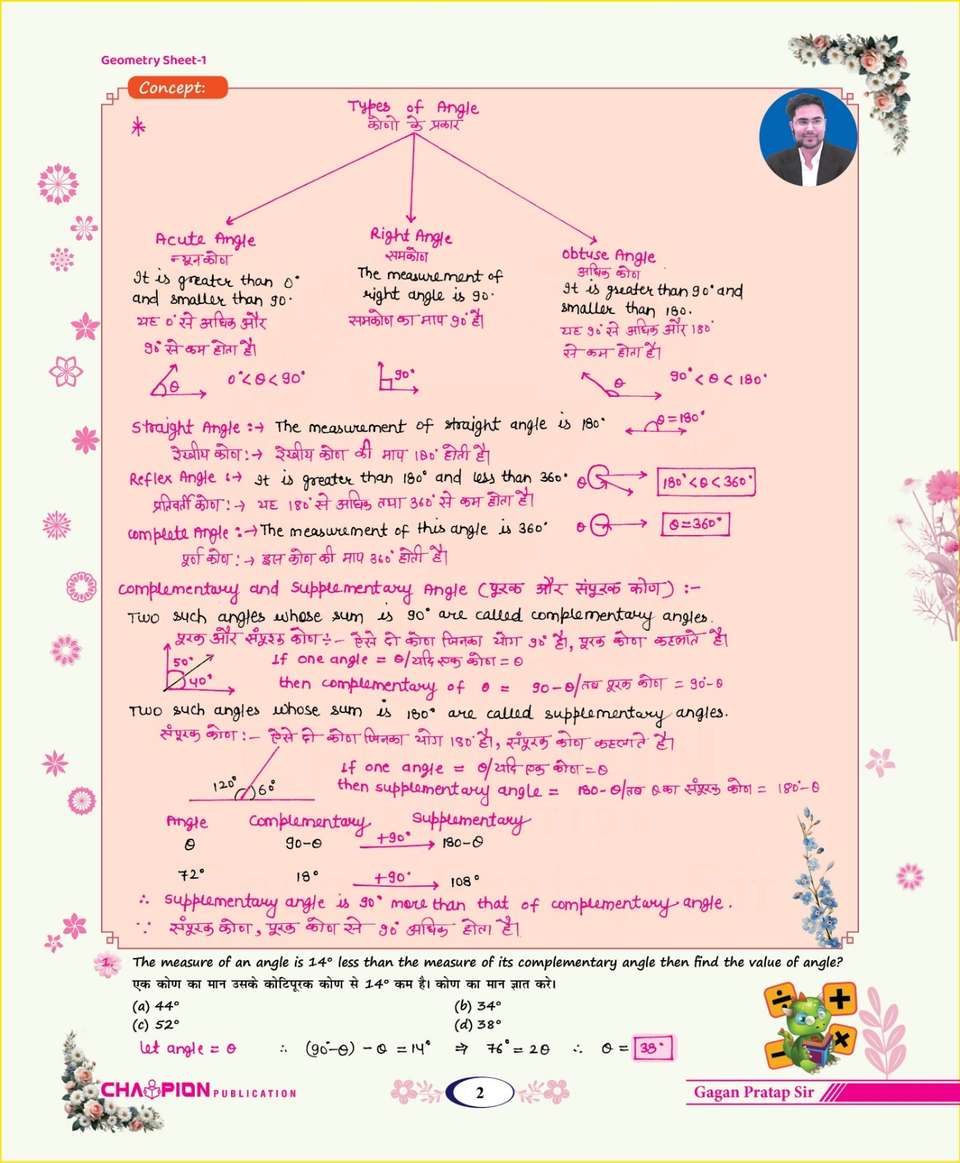 Geometry Sheet-1
Concept:
Types of Angle
कोणो के प्रकार
*
Acute Angle
न्यूनकोण
It is greater than 0°
and smaller than 90.
यह 0° से अधिक और
90° से कम होता है।
θ 0° < θ < 90°
Right Angle
समकोण
The measurement of
right angle is 90.
समकोण का माप 90° है।
90°
obtuse Angle
अधिक कोण
It is greater than 90° and
smaller than 180.
यह 90° से अधिक और 180°
से कम होता है।
θ 90° < θ < 180°
Straight Angle :→ The measurement of straight angle is 180° θ = 180°
रेखीय कोण :→ रेखीय कोण की माप 180° होती है।
Reflex Angle :→ It is greater than 180° and less than 360° θ 180° < θ < 360°
प्रतिवर्ती कोण :→ यह 180° से अधिक तथा 360° से कम होता है।
complete Angle :→ The measurement of this angle is 360° θ θ = 360°
पूर्ण कोण :→ इस कोण की माप 360° होती है।
complementary and supplementary Angle (पूरक और संपूरक कोण) :-
Two such angles whose sum is 90° are called complementary angles.
पूरक और संपूरक कोण :- ऐसे दो कोण जिनका योग 90° है, पूरक कोण कहलाते है।
50°
40°
If one angle = θ/यदि एक कोण = θ
then complementary of θ = 90 - θ/तब पूरक कोण = 90° - θ
Two such angles whose sum is 180° are called supplementary angles.
संपूरक कोण :- ऐसे दो कोण जिनका योग 180° है, संपूरक कोण कहलाते है।
120° 60°
If one angle = θ/यदि एक कोण = θ
then supplementary angle = 180 - θ/तब θ का संपूरक कोण = 180° - θ
Angle Complementary Supplementary
θ 90-θ +90° 180-θ
72° 18° +90° 108°
∴ supplementary angle is 90° more than that of complementary angle.
∵ संपूरक कोण, पूरक कोण से 90° अधिक होता है।
1. The measure of an angle is 14° less than the measure of its complementary angle then find the value of angle?
एक कोण का मान उसके कोटिपूरक कोण से 14° कम है। कोण का मान ज्ञात करे।
(a) 44° (b) 34°
(c) 52° (d) 38°
let angle = θ ∴ (90°-θ) - θ = 14° ⇒ 76° = 2θ ∴ θ = 38°
÷ +
- ×
CHAMPION PUBLICATION
2
Gagan Pratap Sir